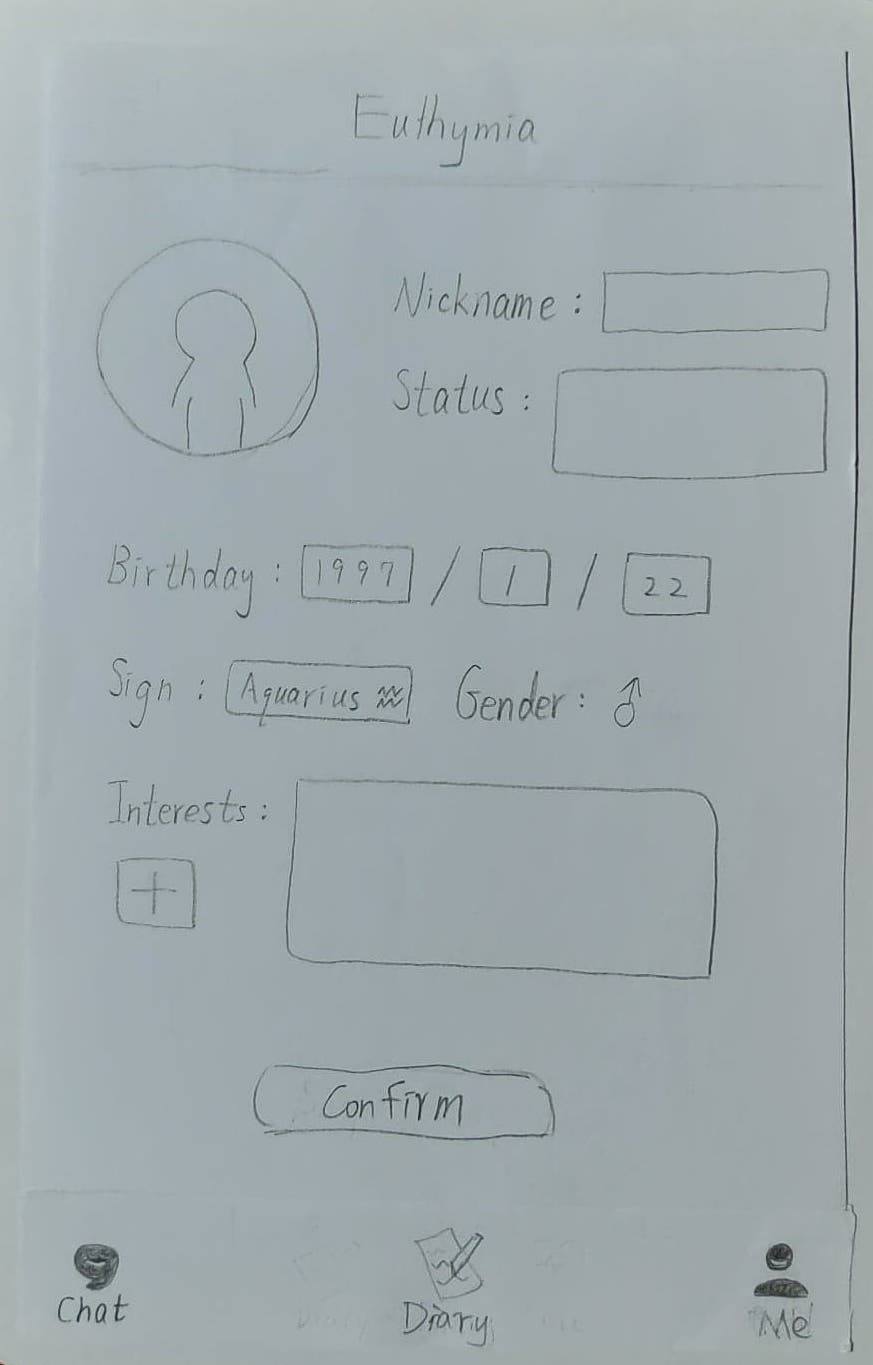 Euthymia
Nickname :
Status :
Birthday : 1997 / 1 / 22
Sign : Aquarius ♒ Gender : ♂
Interests :
+
Confirm
Chat Diary Me